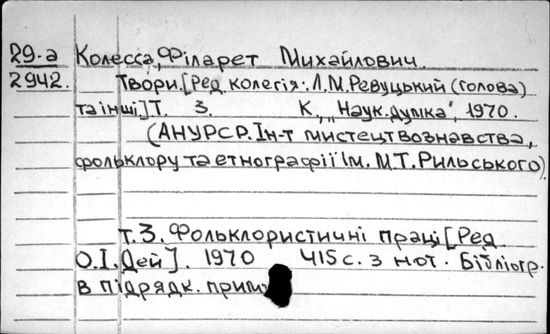 29.а Колесса, Філарет Михайлович.
2942. Твори. [Ред колегія: Л.М.Ревуцький (голова)
та інші] Т. 3. К., „Наук.думка", 1970.
(АНУРСР. Ін-т мистецтвознавства,
фольклору та етнографії ім. М.Т.Рильського).
т.3. Фольклористичні праці [Ред.
О.І.Дей]. 1970 415 с. з нот. Бібліогр.
в підрядк.